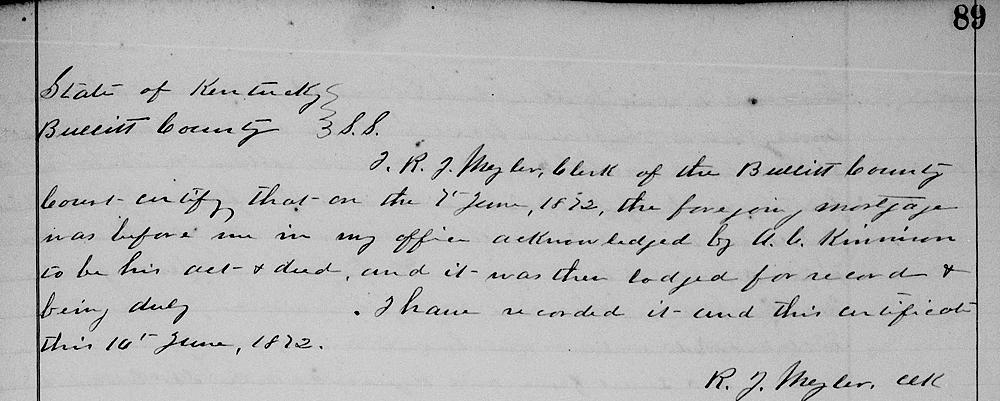 89
State of Kentucky }
Bullitt County } S.S.
I, R. J. Meyler, Clerk of the Bullitt County
Court certify that on the 7" June, 1872, the foregoing mortgage
was before me in my office acknowledged by A. C. Kinnison
to be his act & deed, and it was then lodged for record &
being duly . I have recorded it and this certificate
this 10" June, 1872.
R. J. Meyler, clk